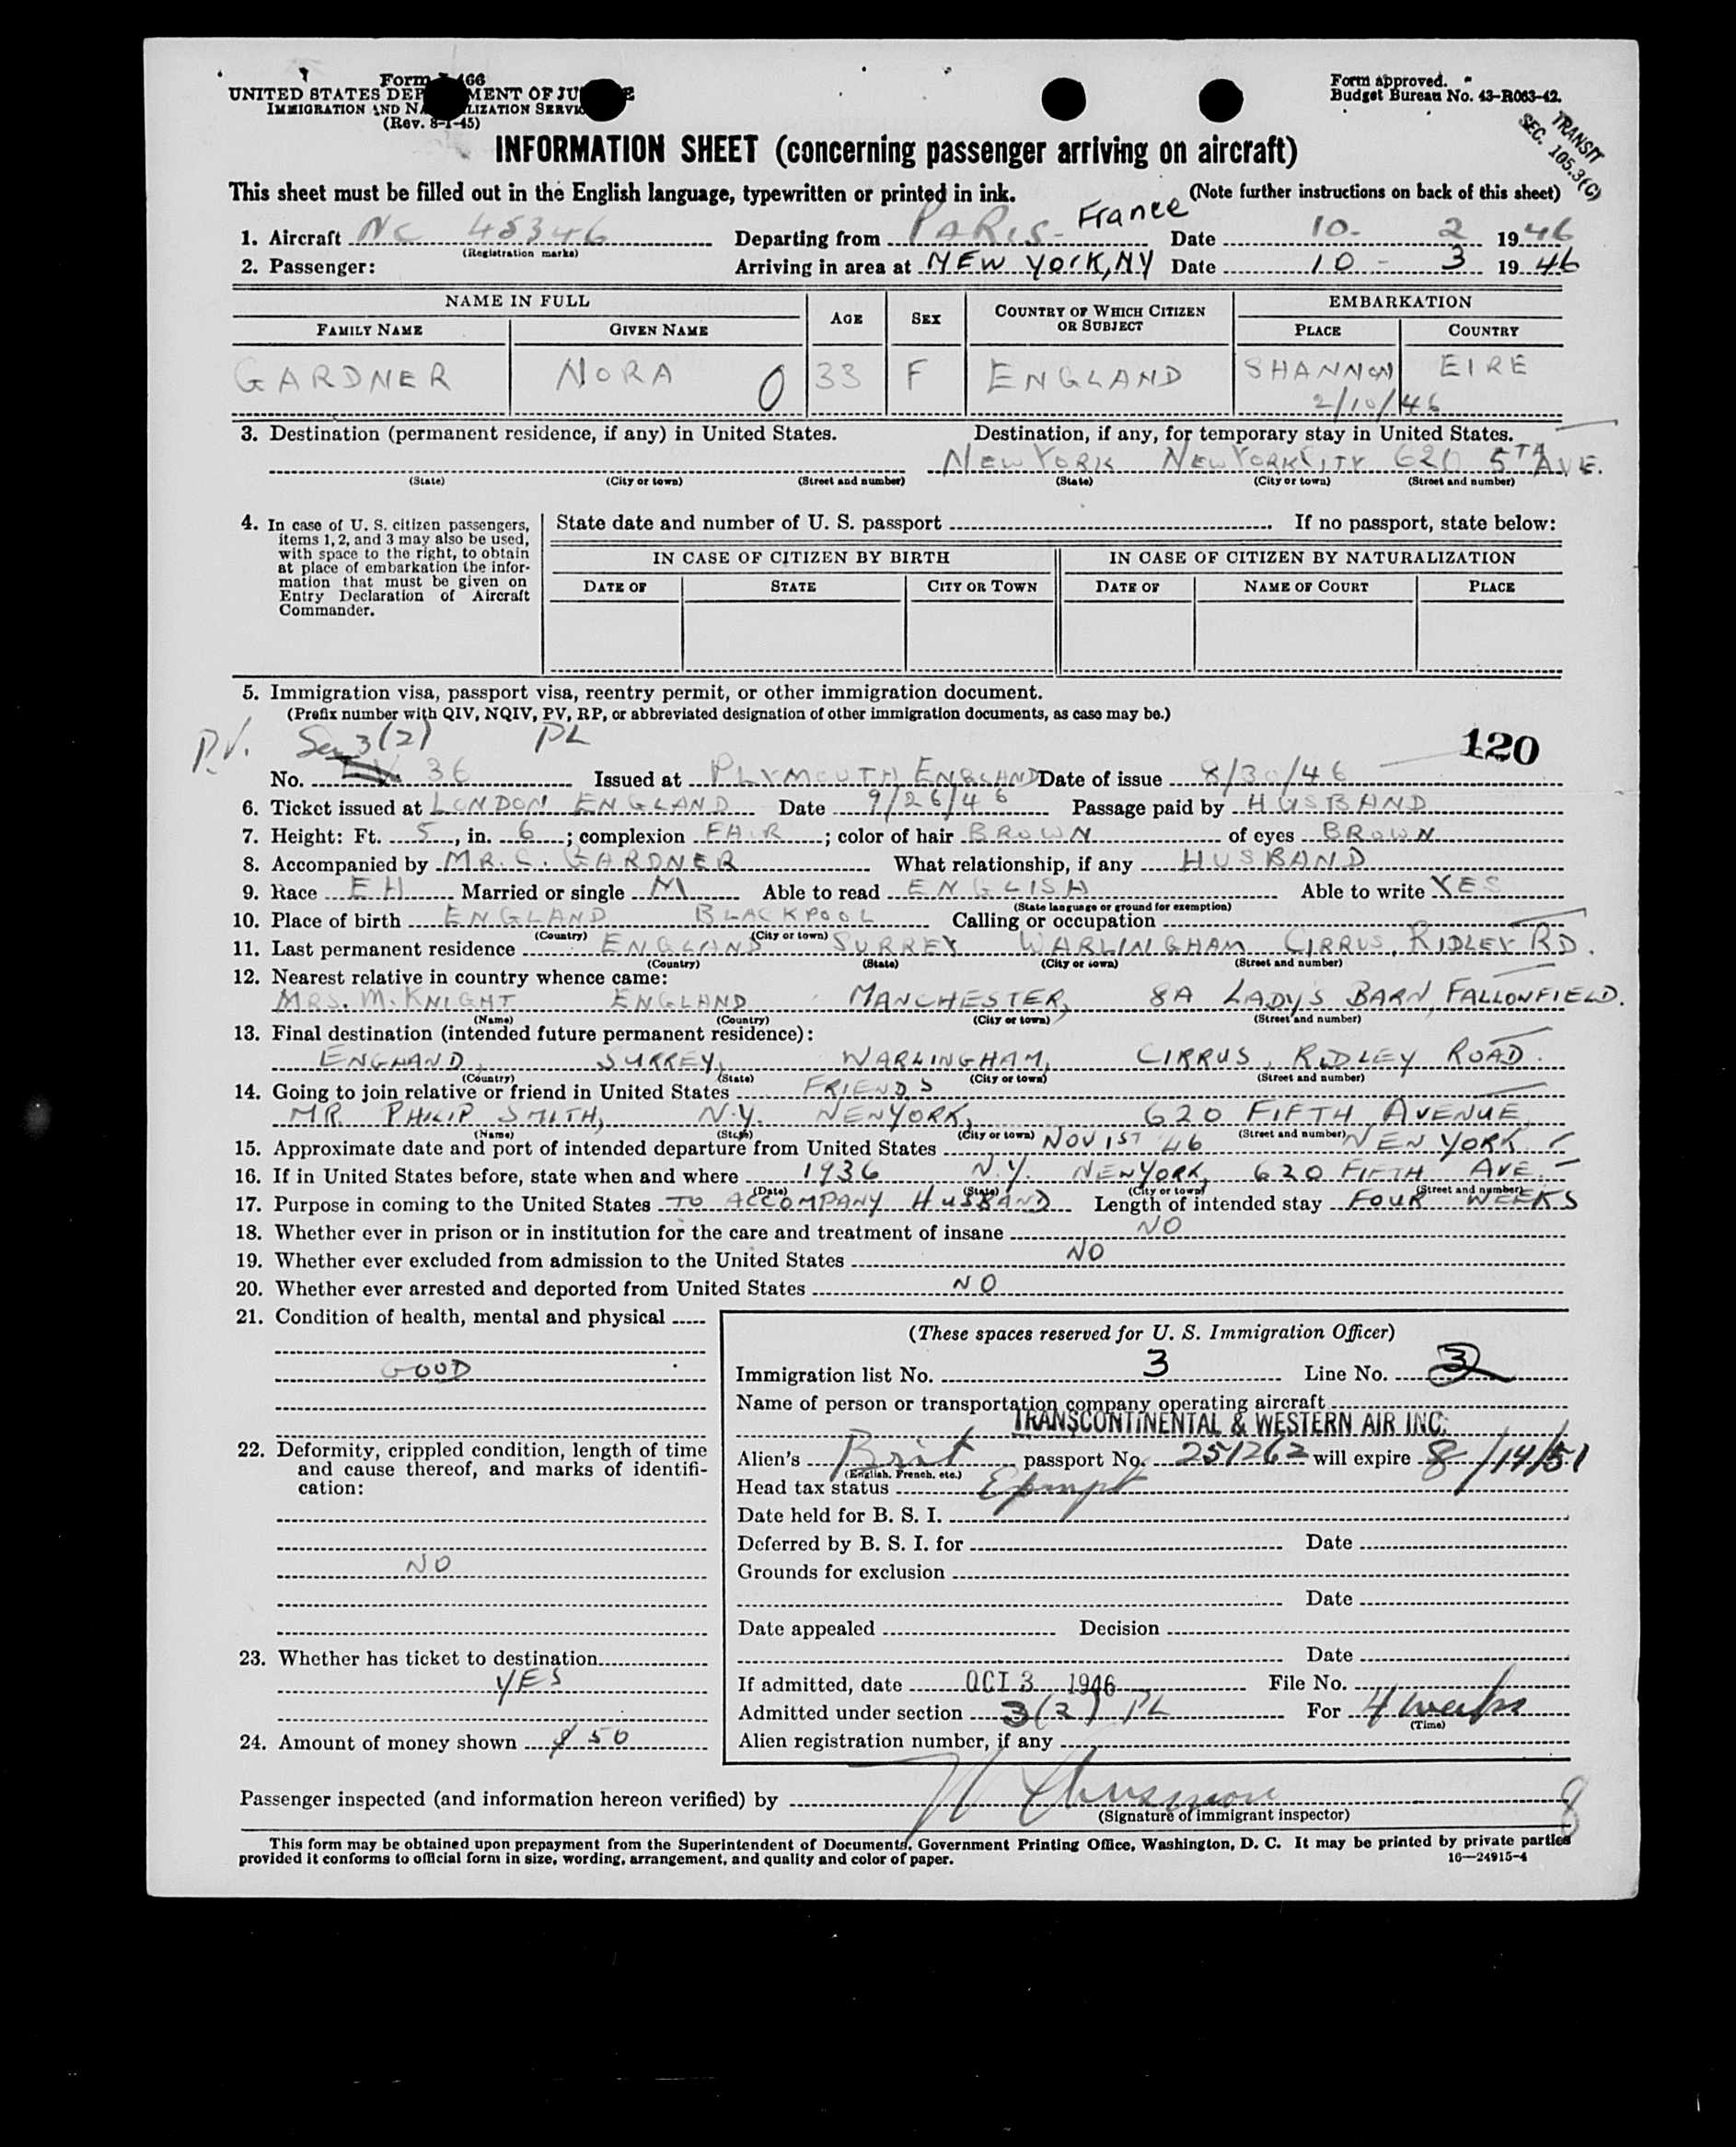 Form I-466
UNITED STATES DEPARTMENT OF JUSTICE
IMMIGRATION AND NATURALIZATION SERVICE
(Rev. 8-1-45)
Form approved.
Budget Bureau No. 43-R063-42.
TRANSIT
SEC. 105.3(C)
INFORMATION SHEET (concerning passenger arriving on aircraft)
This sheet must be filled out in the English language, typewritten or printed in ink. (Note further instructions on back of this sheet)
1. Aircraft NC 45346 Departing from PARIS - France Date 10- 2 1946
(Registration marks)
2. Passenger: Arriving in area at NEW YORK, NY Date 10 - 3 1946
NAME IN FULL AGE SEX COUNTRY OF WHICH CITIZEN OR SUBJECT EMBARKATION
FAMILY NAME GIVEN NAME PLACE COUNTRY
GARDNER NORA 0 33 F ENGLAND SHANNON EIRE
2/10/46
3. Destination (permanent residence, if any) in United States. Destination, if any, for temporary stay in United States.
NEW YORK NEW YORK CITY 620 5TH AVE.
(State) (City or town) (Street and number) (State) (City or town) (Street and number)
4. In case of U. S. citizen passengers, items 1, 2, and 3 may also be used, with space to the right, to obtain at place of embarkation the information that must be given on Entry Declaration of Aircraft Commander.
State date and number of U. S. passport If no passport, state below:
IN CASE OF CITIZEN BY BIRTH IN CASE OF CITIZEN BY NATURALIZATION
DATE OF STATE CITY OR TOWN DATE OF NAME OF COURT PLACE
5. Immigration visa, passport visa, reentry permit, or other immigration document.
(Prefix number with QIV, NQIV, PV, RP, or abbreviated designation of other immigration documents, as case may be.)
P.V. Sec 3(2) PL 120
No. 36 Issued at PLYMOUTH ENGLAND Date of issue 8/30/46
6. Ticket issued at LONDON ENGLAND Date 9/26/46 Passage paid by HUSBAND
7. Height: Ft. 5, in. 6; complexion FAIR; color of hair BROWN of eyes BROWN
8. Accompanied by MR. C. GARDNER What relationship, if any HUSBAND
9. Race EH Married or single M Able to read ENGLISH Able to write YES
(State language or ground for exemption)
10. Place of birth ENGLAND BLACKPOOL Calling or occupation
(Country) (City or town)
11. Last permanent residence ENGLAND SURREY WARLINGHAM CIRRUS, RIDLEY RD.
(Country) (State) (City or town) (Street and number)
12. Nearest relative in country whence came:
MRS. M. KNIGHT ENGLAND MANCHESTER, 8A LADY'S BARN, FALLOWFIELD.
(Name) (Country) (City or town) (Street and number)
13. Final destination (intended future permanent residence):
ENGLAND, SURREY, WARLINGHAM, CIRRUS, RIDLEY ROAD.
(Country) (State) (City or town) (Street and number)
14. Going to join relative or friend in United States FRIENDS
MR. PHILIP SMITH, N.Y. NEW YORK, 620 FIFTH AVENUE
(Name) (State) (City or town) (Street and number)
15. Approximate date and port of intended departure from United States NOV 1ST 46 NEW YORK
16. If in United States before, state when and where 1936 N.Y. NEW YORK, 620 FIFTH AVE.
(Date) (State) (City or town) (Street and number)
17. Purpose in coming to the United States TO ACCOMPANY HUSBAND Length of intended stay FOUR WEEKS
18. Whether ever in prison or in institution for the care and treatment of insane NO
19. Whether ever excluded from admission to the United States NO
20. Whether ever arrested and deported from United States NO
21. Condition of health, mental and physical
GOOD
22. Deformity, crippled condition, length of time and cause thereof, and marks of identification:
NO
23. Whether has ticket to destination
YES
24. Amount of money shown $ 50
(These spaces reserved for U. S. Immigration Officer)
Immigration list No. 3 Line No. 3
Name of person or transportation company operating aircraft
TRANSCONTINENTAL & WESTERN AIR INC.
Alien's Brit passport No. 251262 will expire 8/14/51
(English, French, etc.)
Head tax status Exempt
Date held for B. S. I.
Deferred by B. S. I. for Date
Grounds for exclusion
Date
Date appealed Decision
Date
If admitted, date OCT 3 1946 File No.
Admitted under section 3(2) PL For 4 weeks
(Time)
Alien registration number, if any
Passenger inspected (and information hereon verified) by
(Signature of immigrant inspector)
8
This form may be obtained upon prepayment from the Superintendent of Documents, Government Printing Office, Washington, D. C. It may be printed by private parties
provided it conforms to official form in size, wording, arrangement, and quality and color of paper. 16—24915-4